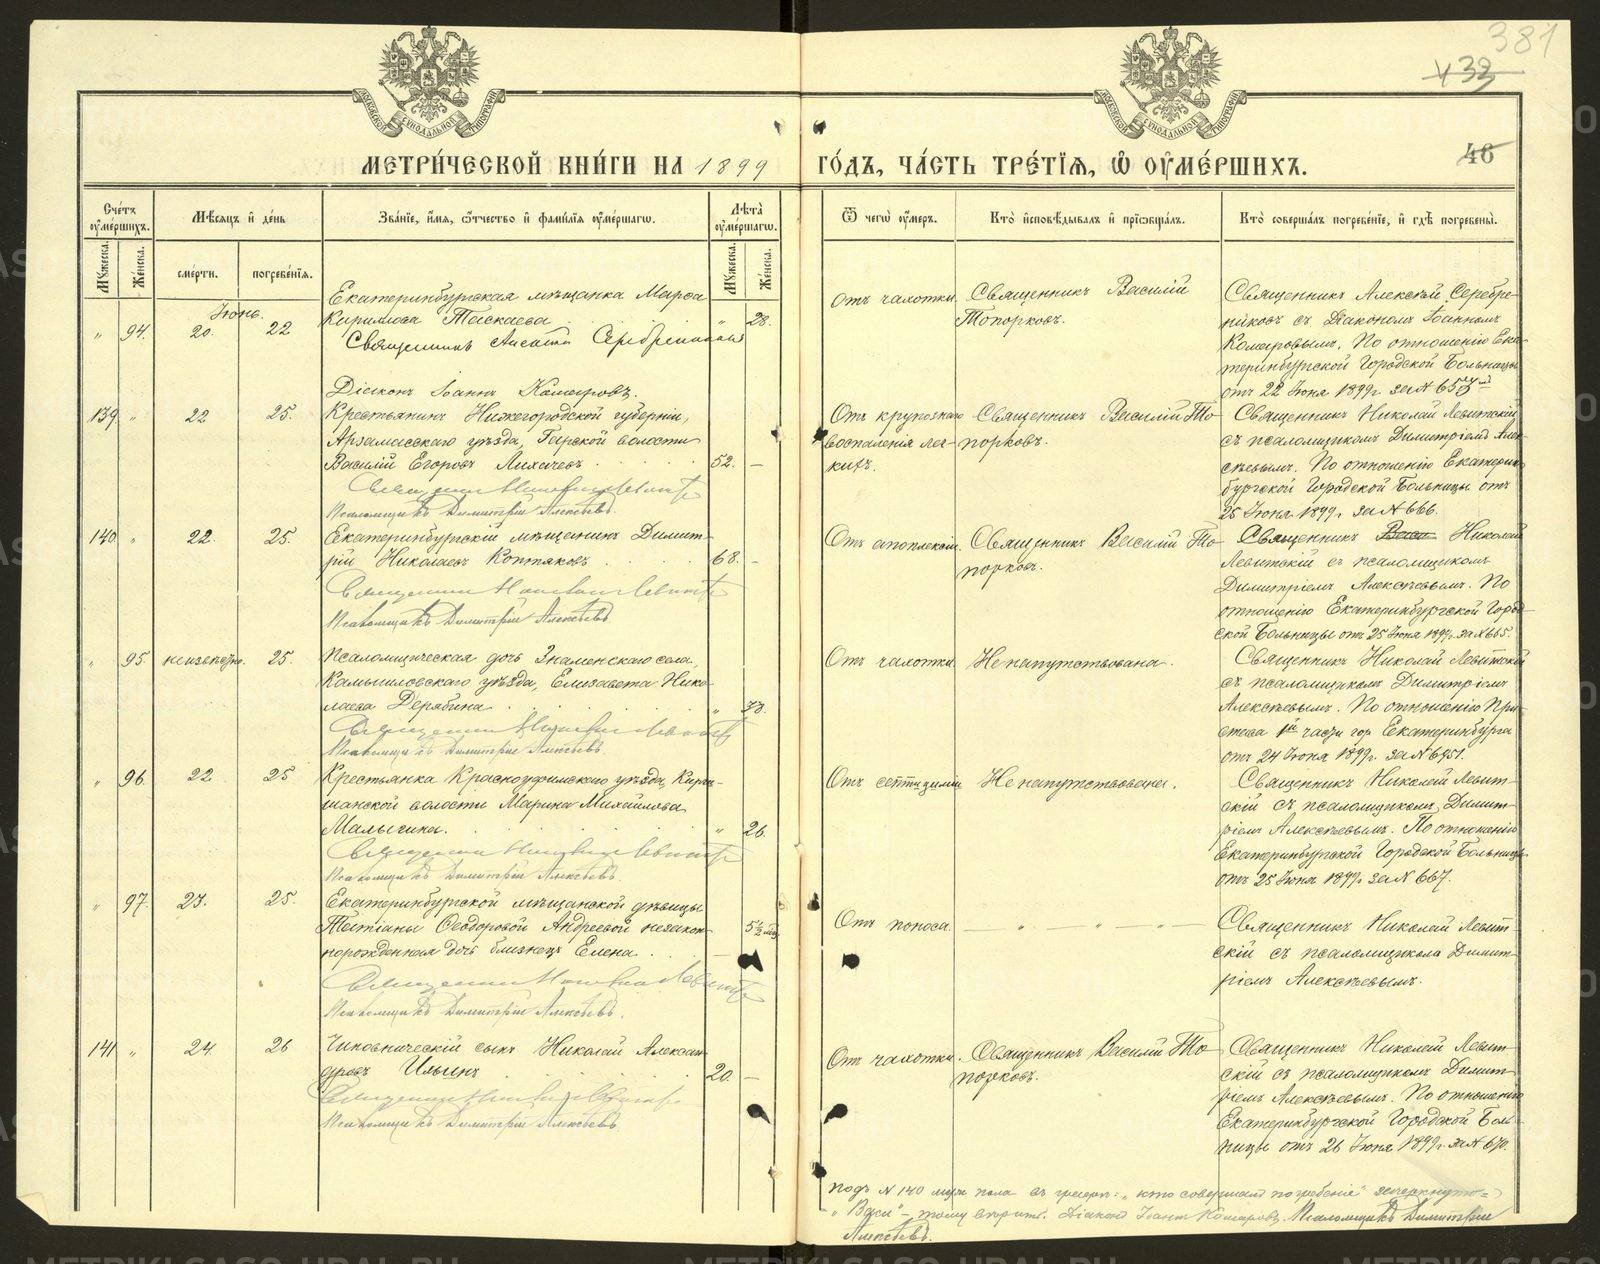 381
433
МЕТРИ́ЧЕСКОЙ КНИ́ГИ НА 1899 ГО́ДЪ, ЧА́СТЬ ТРЕ́ТІѦ, Ѡ҆ ОУ҆МЕ́РШИХЪ.
46
Сче́тъ оу҆ме́ршихъ.
Мѣ́сяцъ и҆ де́нь
Зва́нїе, и҆́мя, ѻ҆́тчество и҆ фами́лїя оу҆ме́ршагѡ.
Лѣ́та оу҆ме́ршагѡ.
Ѿ чегѡ̀ оу҆́меръ.
Кто̀ и҆сповѣ́дывалъ и҆ прїѡбща́лъ.
Кто̀ соверша́лъ погребе́нїе, и҆ гдѣ̀ погребены̀.
Му́жеска.
Же́нска.
сме́рти.
погребе́нїя.
Му́жеска.
Же́нска.
Іюнь.
„ 94. 20. 22
Екатеринбургская мѣщанка Марѳа
Кириллова Таскаева „ 28.
Священникъ Алексѣй Серебренниковъ
Діаконъ Іоаннъ Комаровъ.
Отъ чахотки.
Священникъ Василій
Топорковъ.
Священникъ Алексѣй Серебре-
никовъ съ Діакономъ Іоанномъ
Комаровымъ. По отношенію Ека-
теринбургской Городской Больницы
отъ 22 Іюня 1899 г. за №
139. „ 22 25.
Крестьянинъ Нижегородской губерніи,
Арзамасскаго уѣзда, Гарской волости
Василій Егоровъ Лихачевъ 52. —
Священникъ Николай Левитскій
Псаломщикъ Димитрій Алексѣевъ.
Отъ крупознаго
воспаленія лег-
кихъ.
Священникъ Василій То-
порковъ.
Священникъ Николай Левитскій
съ псаломщикомъ Димитріемъ Алек-
сѣевымъ. По отношенію Екатерин-
бургской Городской Больницы отъ
25 Іюня 1899 г. за № 666.
140 „ 22. 25.
Екатеринбургскій мѣщанинъ Димит-
рій Николаевъ Коптяковъ 68. —
Священникъ Николай Левитскій
Псаломщикъ Димитрій Алексѣевъ.
Отъ апоплексіи.
Священникъ Василій То-
порковъ.
Священникъ Васи Николай
Левитскій съ псаломщикомъ
Димитріемъ Алексѣевымъ. По
отношенію Екатеринбургской Город-
ской Больницы отъ 25 Іюня 1899 г. за № 665.
„ 95. неизвѣстно. 25.
Псаломщическая дочь Знаменскаго села,
Камышловскаго уѣзда, Елизавета Нико-
лаева Дерябина „ 73.
Священникъ Николай Левитскій
Псаломщикъ Димитрій Алексѣевъ.
Отъ чахотки.
Не напутствована.
Священникъ Николай Левитской
съ псаломщикомъ Димитріемъ
Алексѣевымъ. По отношенію При-
става 1й части гор. Екатеринбурга
отъ 24 Іюня 1899 г. за № 6951.
„ 96. 22 25
Крестьянка Красноуфимскаго уѣзда, Кирги-
шанской волости Марина Михайлова
Малыгина. „ 26.
Священникъ Николай Левитскій
Псаломщикъ Димитрій Алексѣевъ.
Отъ септицэміи
Не напутствована.
Священникъ Николай Левит-
скій съ псаломщикомъ Димит-
ріемъ Алексѣевымъ. По отношенію
Екатеринбургской Городской Больницы
отъ 25 Іюня 1899 г. за № 667.
„ 97. 23. 25.
Екатеринбургской мѣщанской дѣвицы
Татіаны Ѳеодоровой Андреевой незакон-
норожденная дочь близнецъ Елена — 5½ мѣс.
Священникъ Николай Левитскій
Псаломщикъ Димитрій Алексѣевъ.
Отъ поноса.
— „ — „ — „ —
Священникъ Николай Левит-
скій съ псаломщикомъ Димит-
ріемъ Алексѣевымъ.
141 „ 24. 26
Чиновническій сынъ Николай Алексан-
дровъ Ильинъ 20. —
Священникъ Николай Левитскій
Псаломщикъ Димитрій Алексѣевъ.
Отъ чахотки.
Священникъ Василій То-
порковъ.
Священникъ Николай Левит-
скій съ псаломщикомъ Димит-
ріемъ Алексѣевымъ. По отношенію
Екатеринбургской Городской Боль-
ницы отъ 26 Іюня 1899 г. за № 670.
Подъ № 140 муж. пола въ графѣ: „кто совершалъ погребеніе" зачеркнуто
„Васи" – тому вѣрить. Діаконъ Іоаннъ Комаровъ. Псаломщикъ Димитрій
Алексѣевъ.